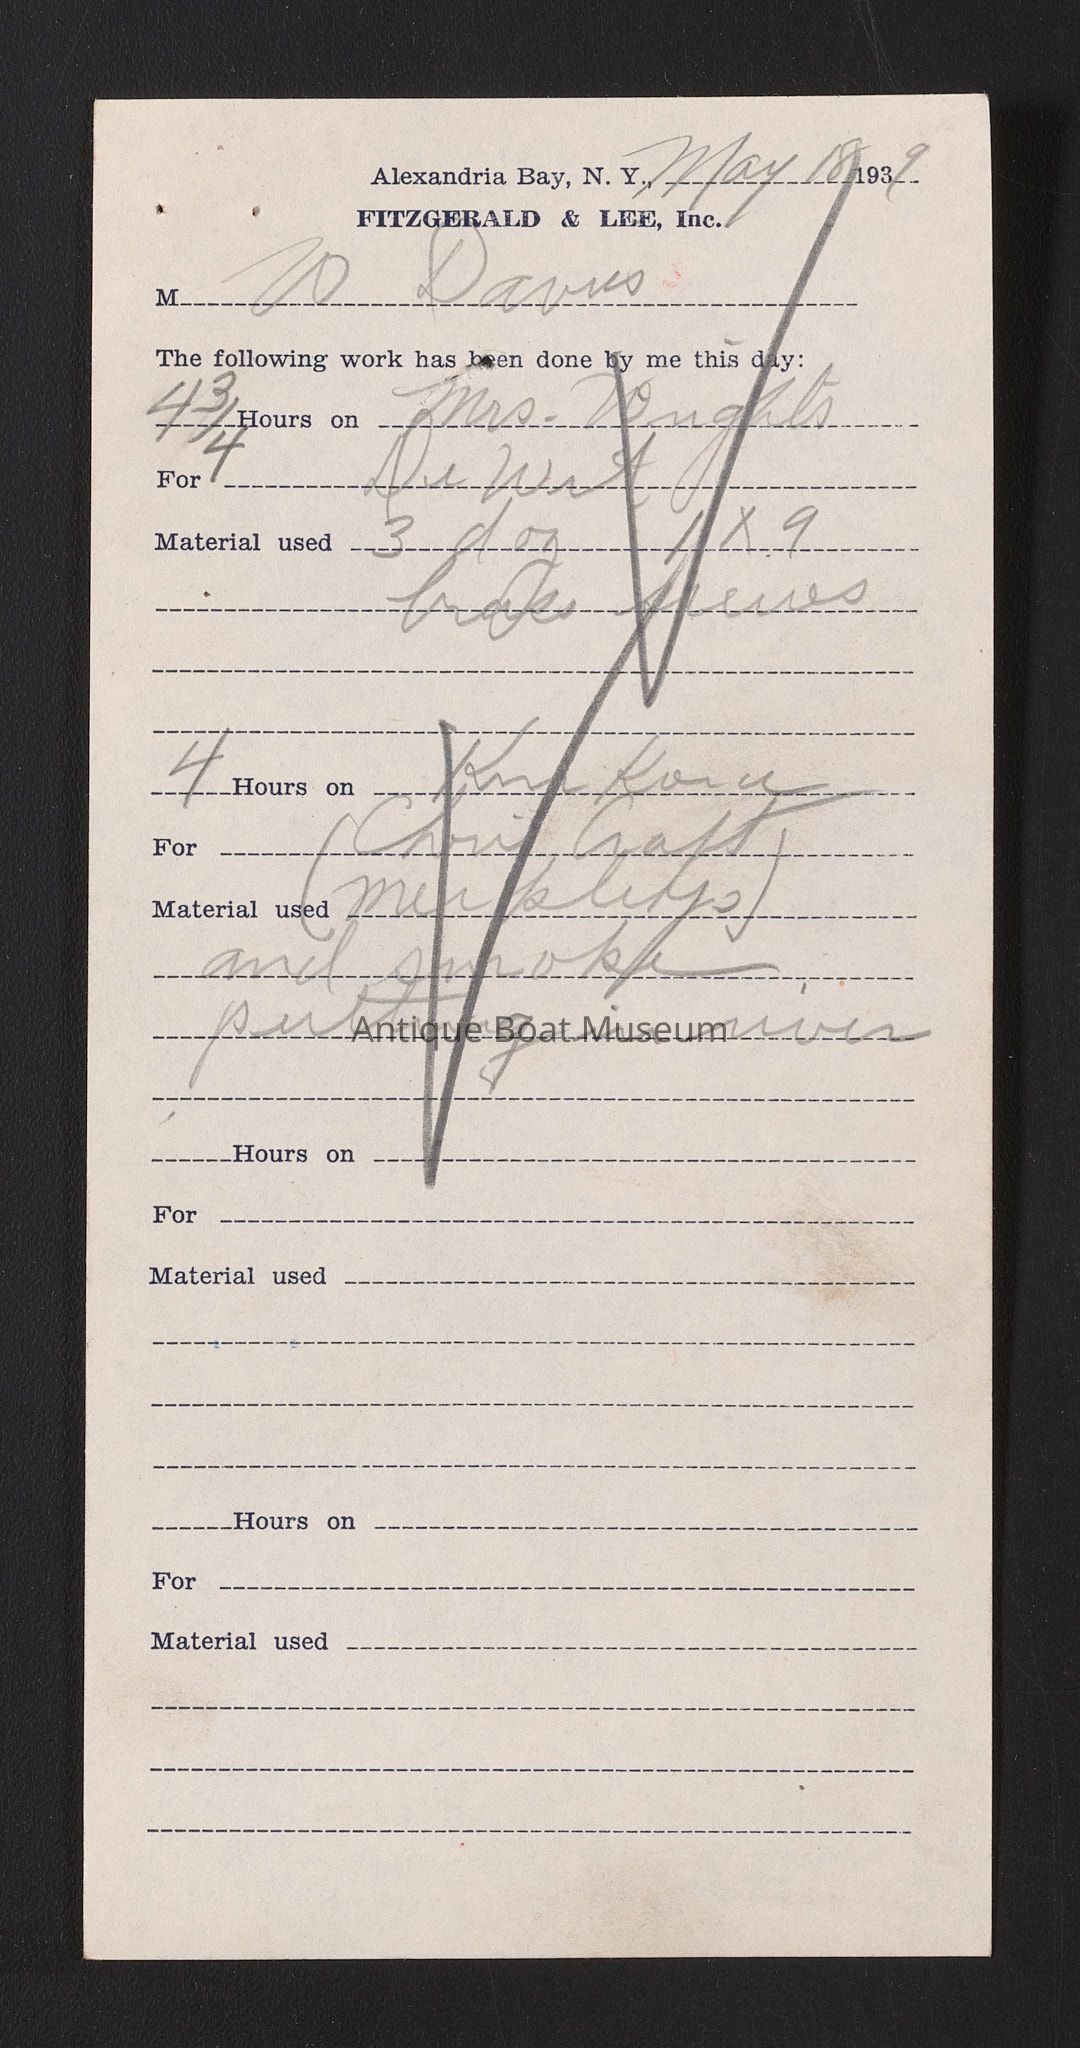 Alexandria Bay, N. Y., May 18 1939
FITZGERALD & LEE, Inc.
M W Davis
The following work has been done by me this day:
4 3/4 Hours on Mrs. Wrights
For De Wit
Material used 3 doz 1 X 9
brass screws
4 Hours on
For (Chris Craft
Material used
and smoke
putting in river
Antique Boat Museum
Hours on
For
Material used
Hours on
For
Material used